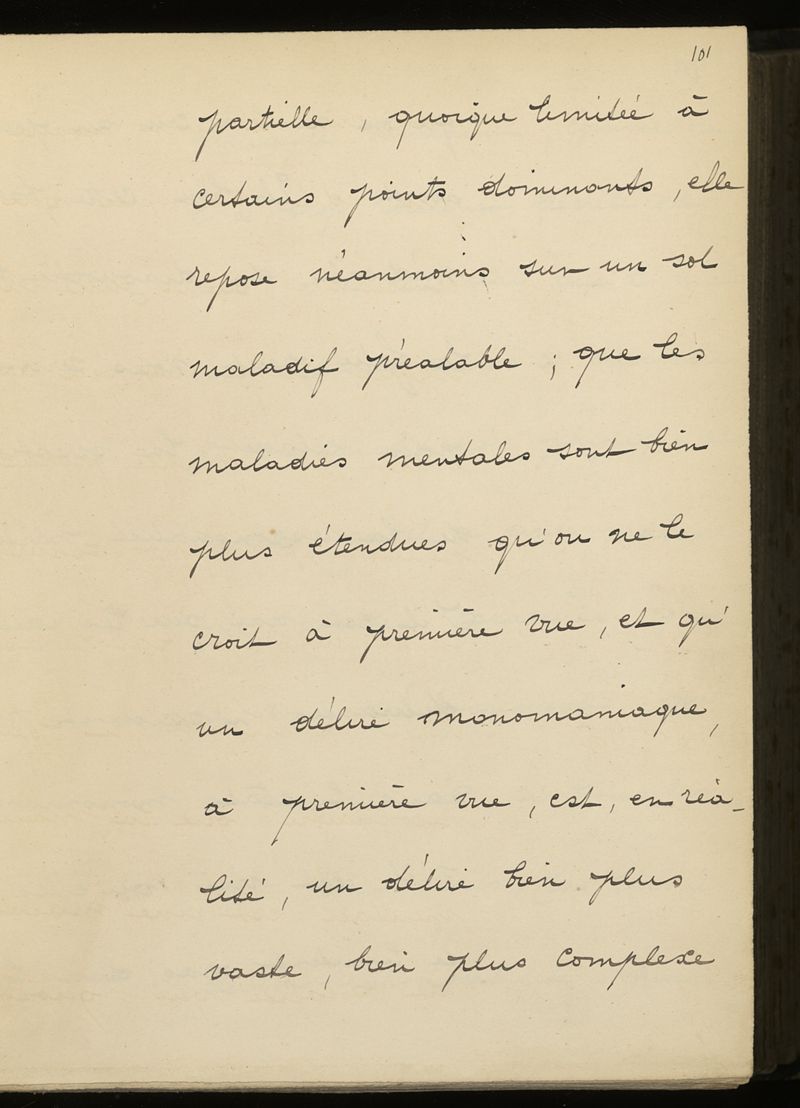 101
partielle, quoique limitée à
certains points dominants, elle
repose néanmoins sur un sol
maladif préalable; que les
maladies mentales sont bien
plus étendues qu'on ne le
croit à première vue, et qu'
un délire monomaniaque,
à première vue, est, en réa-
lité, un délire bien plus
vaste, bien plus complexe